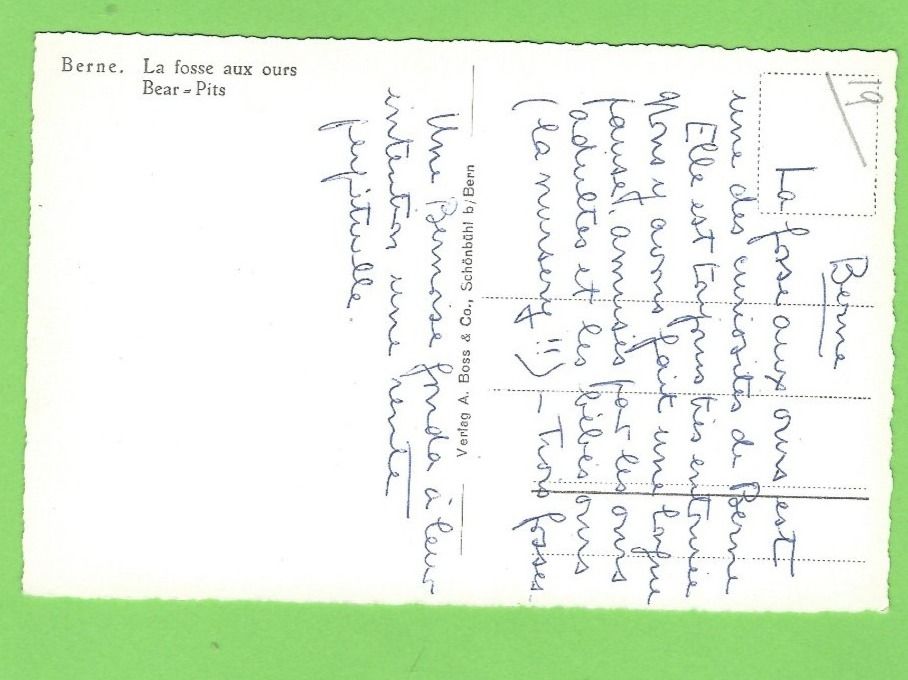 Berne. La fosse aux ours
Bear = Pits
Verlag A. Boss & Co., Schönbühl b/Bern
19
Berne
La fosse aux ours est
une des curiosités de Berne
Elle est toujours très entourée
Nous y avons fait une longue
pause, amusés par les ours
adultes et les bébés ours
(la nursery !!) - Trois fosses.
Une Bernoise fonda à leur
intention une rente
perpétuelle.